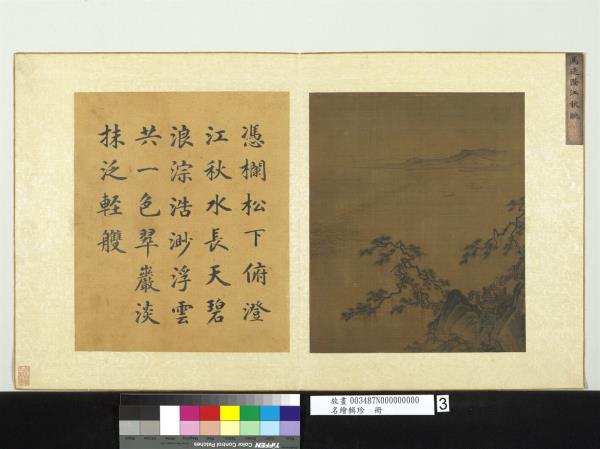 馬遠澄江秋眺
憑欄松下俯澄
江秋水長天碧
浪淙浩渺浮雲
共一色翠巖淡
抹泛輕艭
故畫 003487N000000000
名繪輯珍 冊
3
TIFFEN Color Control Patches